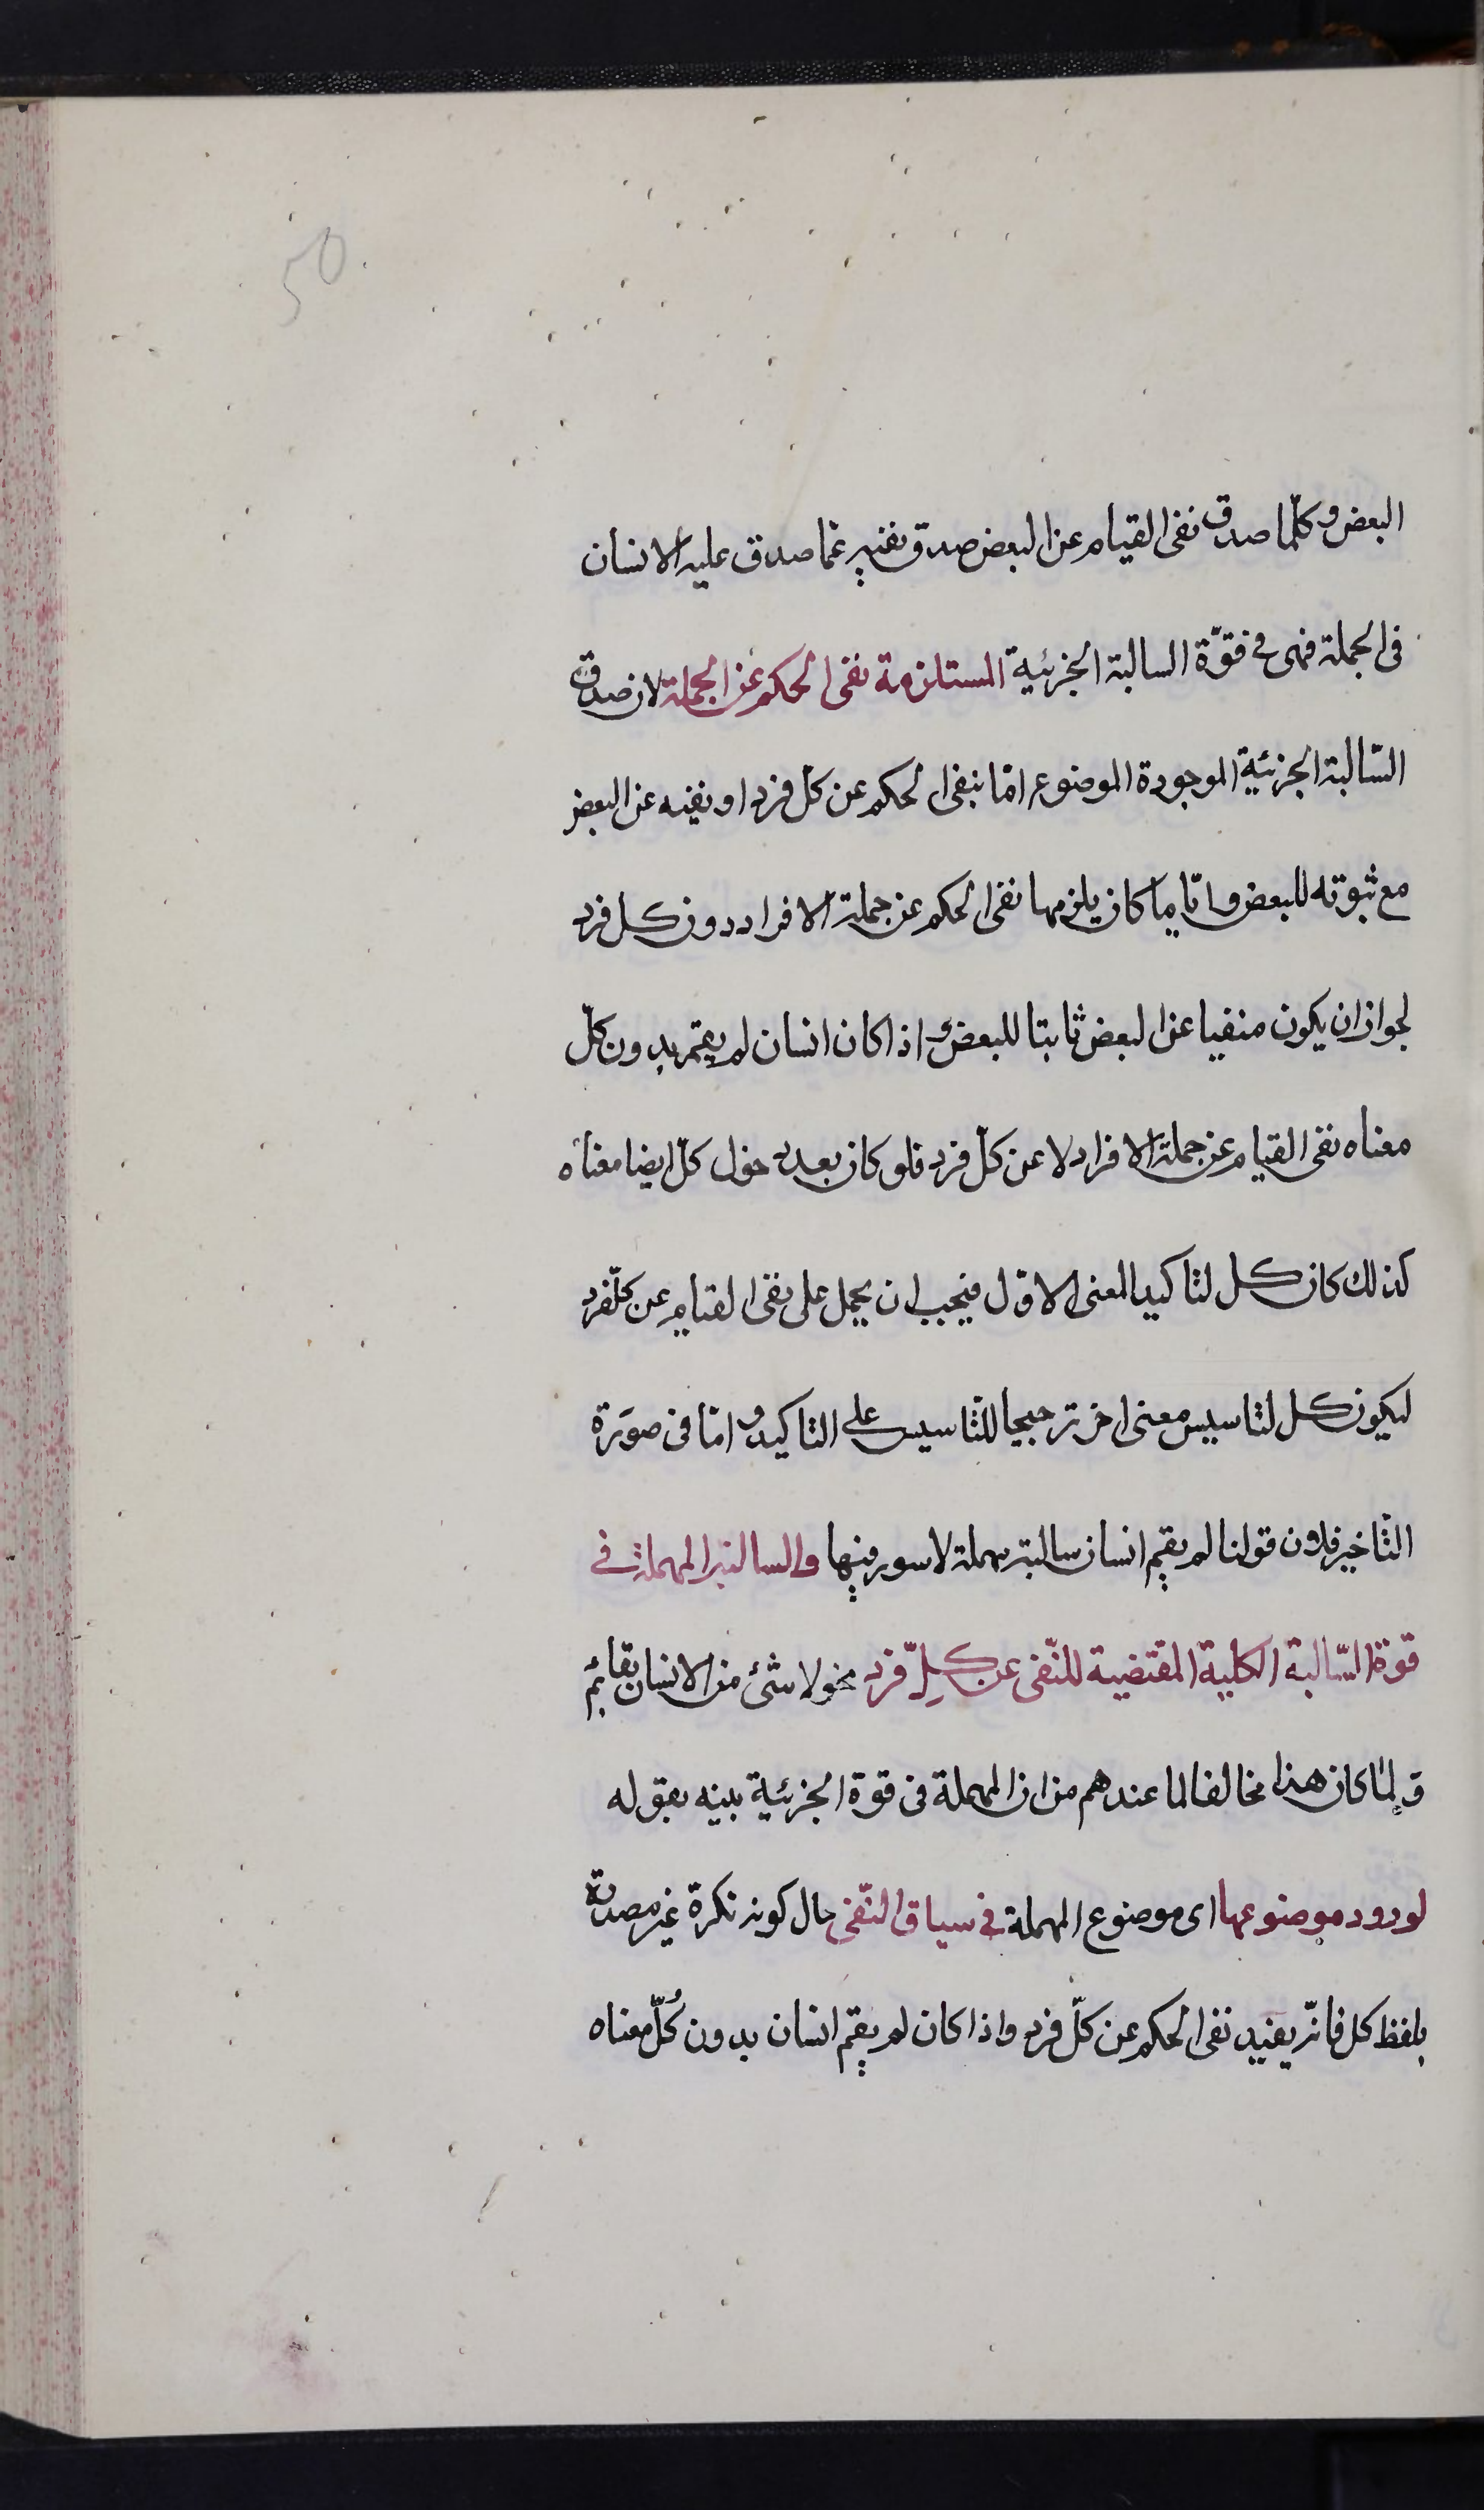 50
البعض وكلّما صدق نفى القيام عن البعض صدق نفيه عمّا صدق عليه الانسان
فى الجملة فهى فى قوّة السالبة الجزئية المستلزمة نفى الحكم عن الجملة لان صدق
السّالبة الجزئية الموجودة الموضوع امّا بنفى الحكم عن كلّ فرد او نفيه عن البعض
مع ثبوته للبعض وايّا ما كان يلزمها نفى الحكم عن جملة الافراد دون كل فرد
لجواز ان يكون منفيا عن البعض ثابتا للبعض واذا كان انسان لم يقم بدون كلّ
معناه نفى القيام عن جملة الافراد لا عن كلّ فرد فلو كان بعد دخول كلّ ايضا معناه
كذلك كان كل لتاكيد المعنى الاوّل فيجب ان يحمل على نفى القيام عن كلّ فرد
ليكون كل لتاسيس معنى اخر ترجيحا للتّاسيس على التاكيد و امّا فى صورة
التّاخير فلان قولنا لم يقم انسان سالبة مهملة لا سور فيها والسالبة المهملة فى
قوة السّالبة الكلية المقتضية للنّفى عن كلِّ فرد نحو لا شئ من الانسان بقائم
و لمّا كان هذا مخالفا لما عندهم من ان المهملة فى قوة الجزئية بينه بقوله
لورود موضوعها اى موضوع المهملة فى سياق النّفى حال كونه نكرة غير مصدرة
بلفظ كل فانّه يفيد نفى الحكم عن كلّ فرد واذا كان لم يقم انسان بدون كُلّ معناه